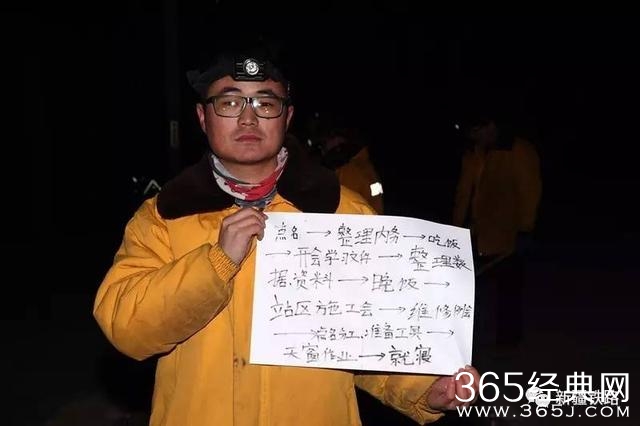 点名 → 整理内务 → 吃饭
→ 开会学习文件 → 整理数
据资料 → 吃饭 →
站区方施工会 → 维修例会
→ 点名分工、准备工具 →
天窗作业 → 就寝
365经典网
新疆铁路
WWW.365J.COM